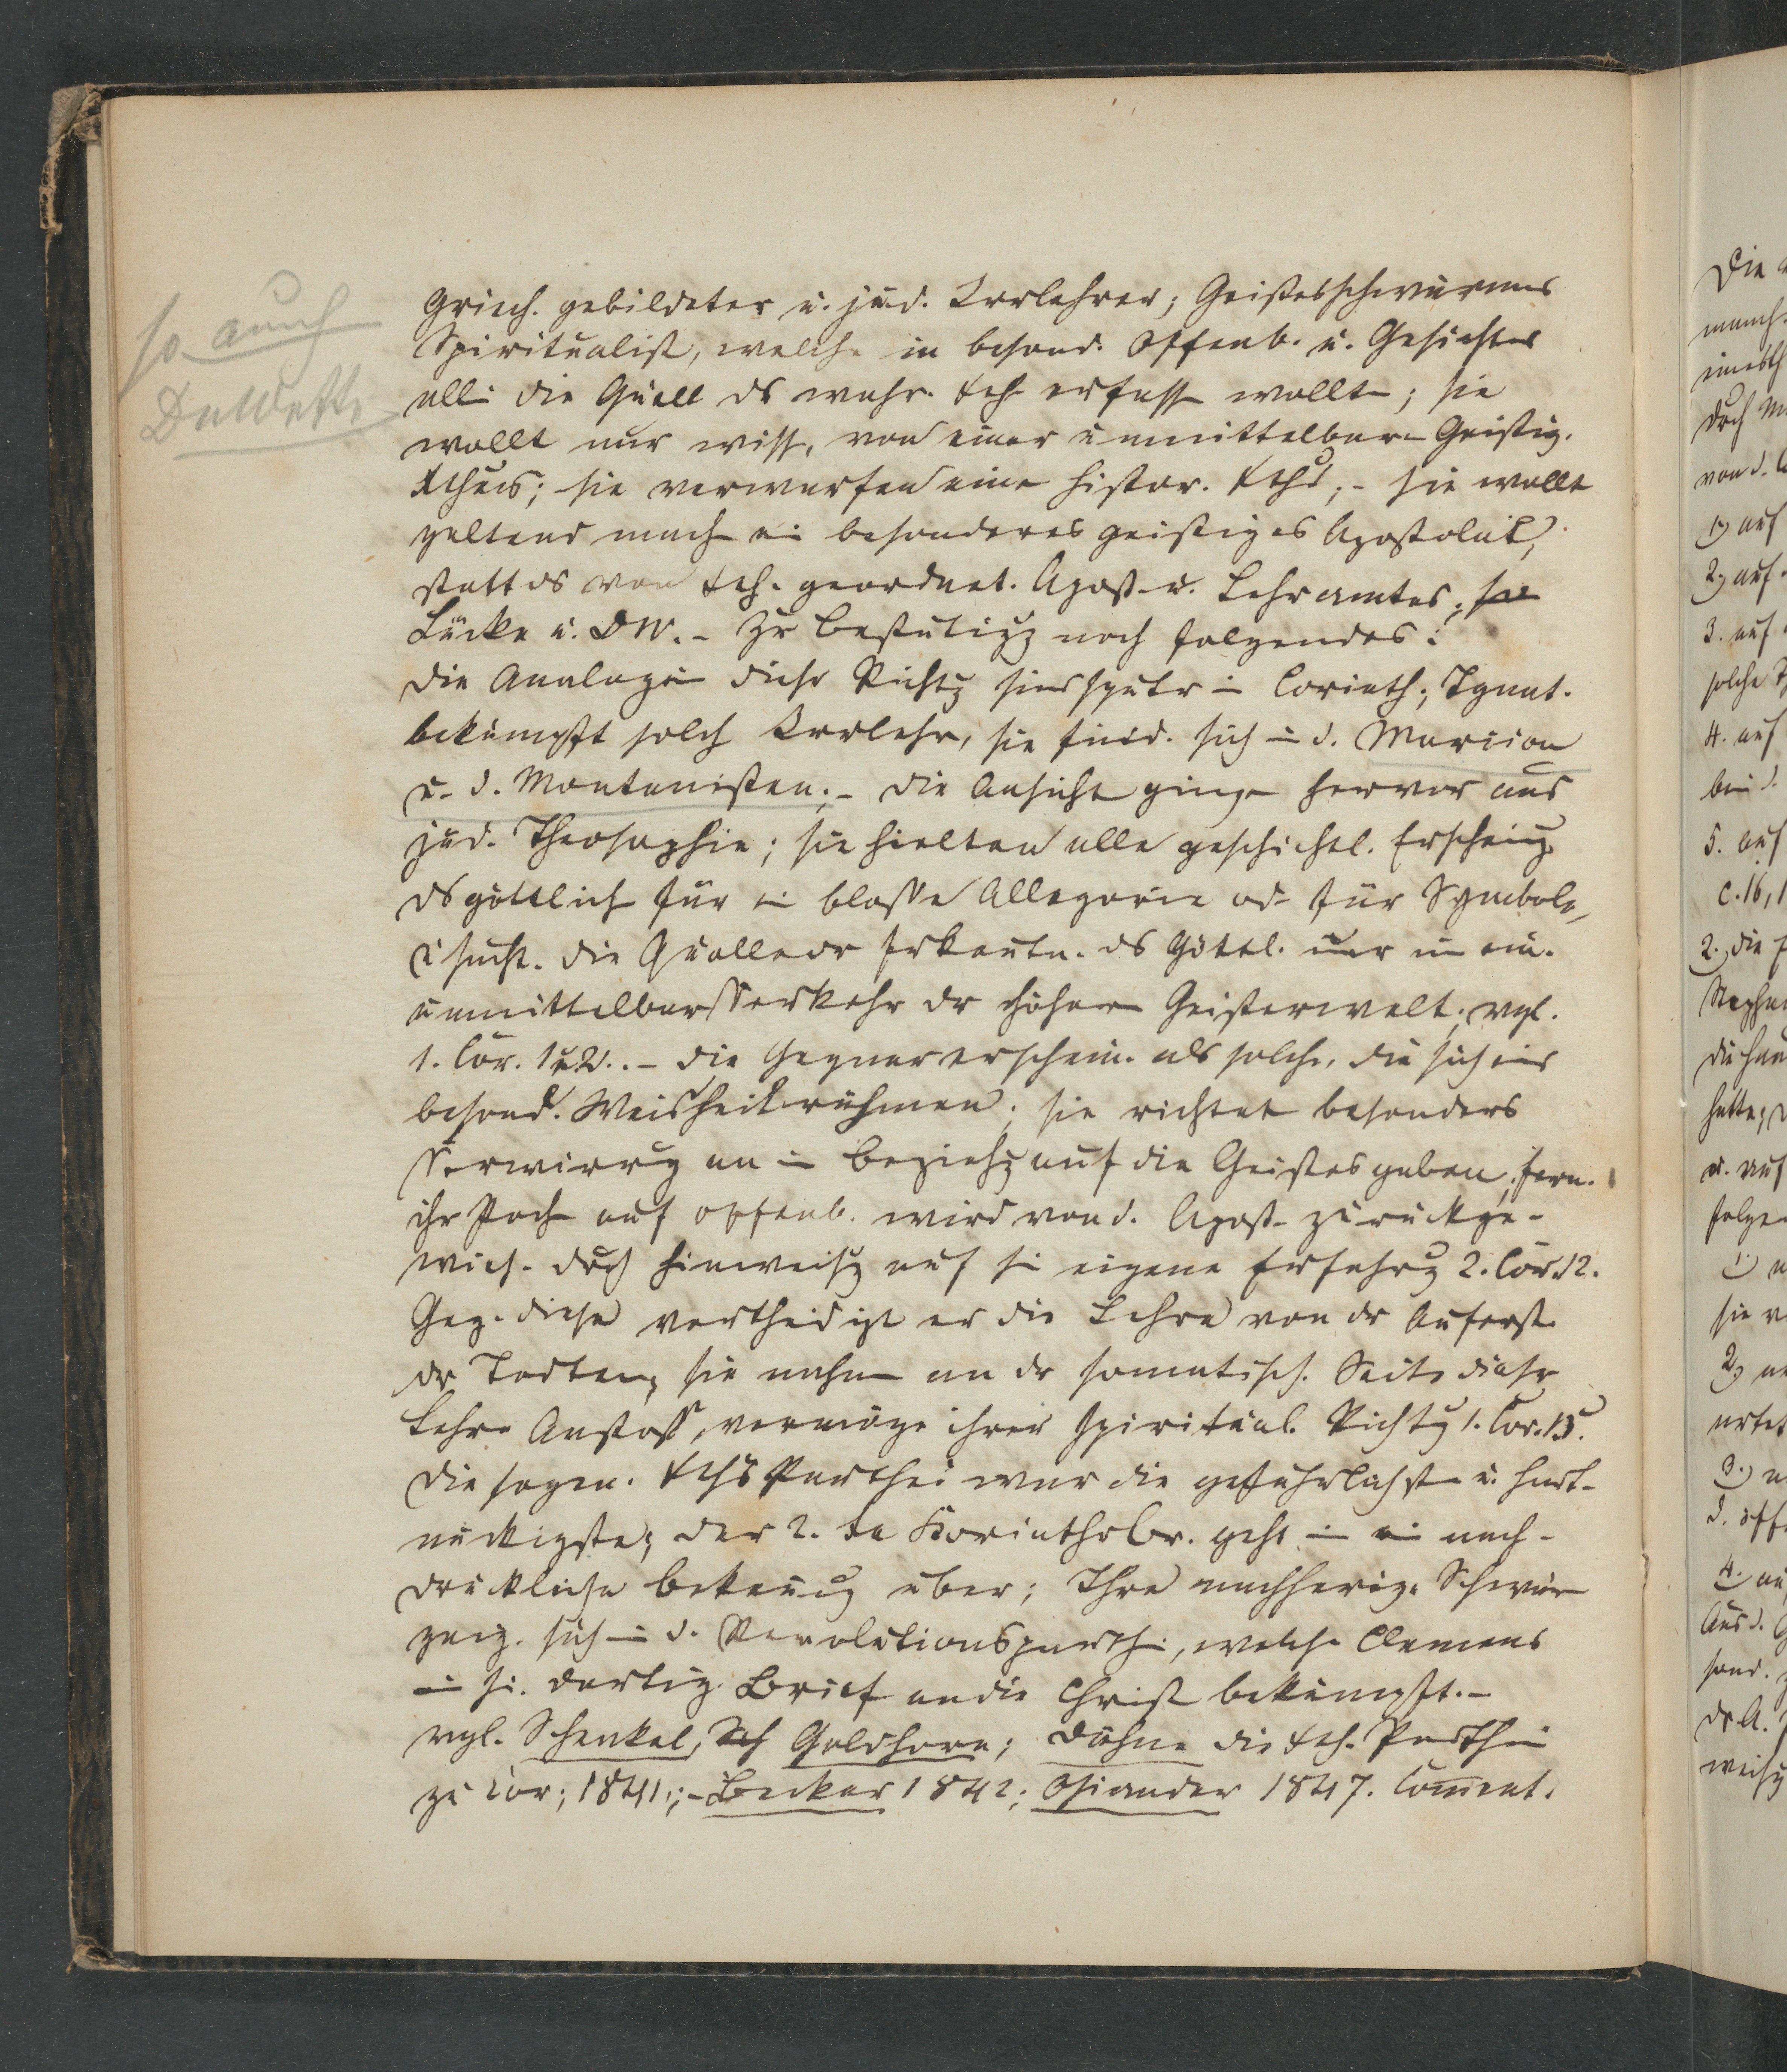 so auch
DeWette
Griech. gebildeter u. jüd. Irrlehrer; Geistesschwärmer
Spiritualist, welche in besond. Offenb. u. Gesichter
all die Quell ds wahr. Xth erfass wollt; sie
wollt nur wiss, von einer unmittelbar Geistig.
Xthus; sie verwarfen eine histor. Xths; - sie wollt
geltend mach ei besonderes geistiges Apostolat,
statt ds von Xth. geordnet. Apost. u. Lehramtes; so
Lücke u. DW. - Zr Bestätigg noch folgendes:
die Analogie diesr Richtg sind später in Corinth; Ignat.
bekämpft solch Irrlehr, sie find. sich in d. Marcion
u. d. Montanisten; - die Ansicht ginge hervor aus
jüd. Theosophie; sie hielten alle geschichtl. Erscheing
ds göttlich für ei blosse Allegorie od für Symbole,
u sucht. die Quelle dr Erkentn. ds Göttl. nur in ein.
unmittelbar Verkehr dr höher Geisterwelt; vgl.
1. Cor. 1 u 2. - die Gegner erschein. als solche, die sich eir
besond. Weisheit rühmen; sie richtet besonders
Verwirrg an in Beziehg auf die Geistesgaben; fern.
ihr Poch auf Offenb. wird von d. Apost zurückge-
wies. durch Hinweisg auf si eigene Erfahrg 2. Cor. 12.
Geg. diese vertheidigt er die Lehre von dr Auferst
dr Todten; sie nahm an dr somatisch. Seite diesr
Lehre Anstoss, vermöge ihrer spiritual. Richtg 1. Cor. 15.
die sogen. Xths Parthei war die gefährlichst u. hart-
näckigste; der 2. te Korinthrbr. geht in ei nach-
drückliche Bekämpfg über; Ihre nachherige
zeig. sich in d. Revolutionsparthi, welche Clemens
in si. dortig. Brief an die Christ bekämpft. -
vgl. Schenkel, Goldhorn; Dähne die Xth. Parthei
zu Cor; 1841; - Becker 1842; Osiander 1847. Coment.